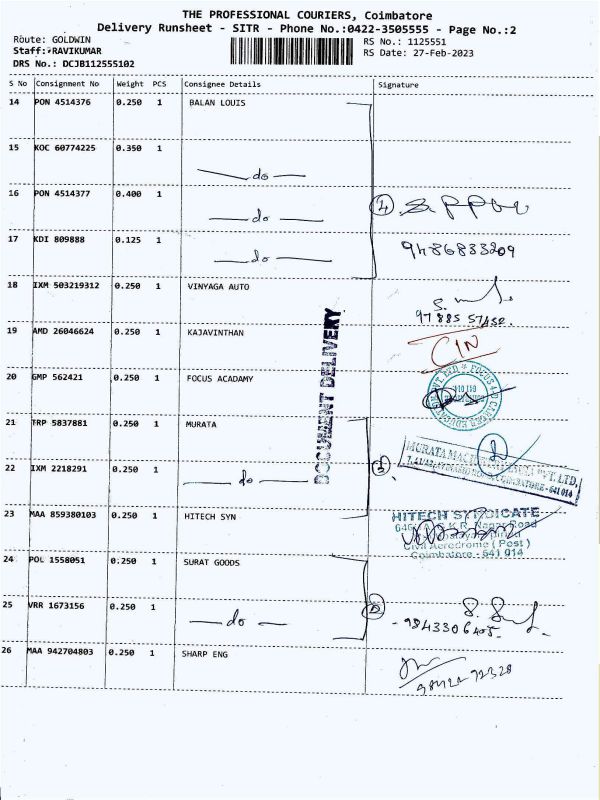 THE PROFESSIONAL COURIERS, Coimbatore
Delivery Runsheet - SITR - Phone No.:0422-3505555 - Page No.:2
Route: GOLDWIN
RS No.: 1125551
Staff:RAVIKUMAR
RS Date: 27-Feb-2023
DRS No.: DCJB112555102
S No Consignment No Weight PCS Consignee Details Signature
14 PON 4514376 0.250 1 BALAN LOUIS
15 KOC 60774225 0.350 1
do
16 PON 4514377 0.400 1
do
17 KDI 809888 0.125 1
do
9486833209
18 IXM 503219312 0.250 1 VINYAGA AUTO
97885 57450.
19 AMD 26046624 0.250 1 KAJAVINTHAN
DOCUMENT DELIVERY
20 GMP 562421 0.250 1 FOCUS ACADAMY
21 TRP 5837881 0.250 1 MURATA
COIMBATORE - 641 014
22 IXM 2218291 0.250 1
do
23 MAA 859380103 0.250 1 HITECH SYN
HITECH SYNDICATE
Nagar Road
Civil Aerodrome (Post)
Coimbatore - 641 014
24 POL 1558051 0.250 1 SURAT GOODS
25 VRR 1673156 0.250 1
do
9843306405
26 MAA 942704803 0.250 1 SHARP ENG